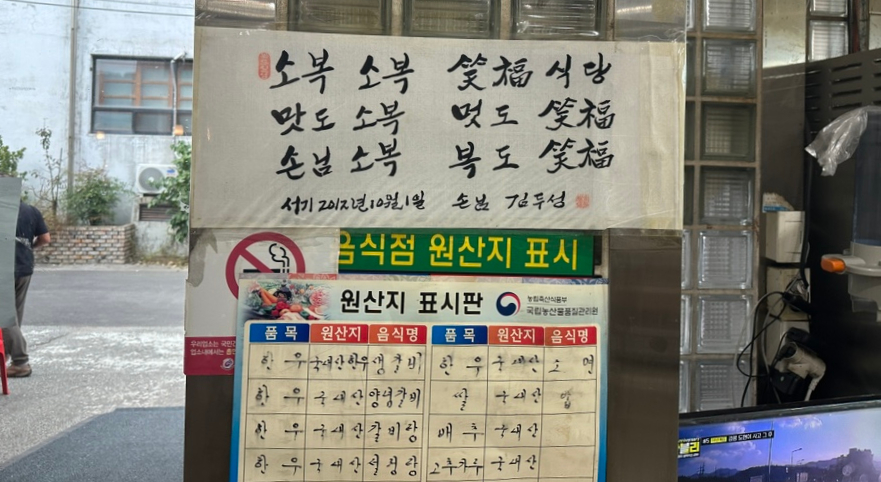 소복 소복 笑福 식당
맛도 소복 멋도 笑福
손님 소복 복도 笑福
서기 2017년 10월 1일 손님 김두성
음식점 원산지 표시
원산지 표시판
농림축산식품부
국립농산물품질관리원
품목 원산지 음식명 품목 원산지 음식명
한우 국내산한우 생갈비 한우 국내산 소면
한우 국내산 양념갈비 쌀 국내산 밥
한우 국내산 갈비탕 배추 국내산
한우 국내산 설렁탕 고추가루 국내산
우리업소는 국민건
업소내에서는 흡연
#5